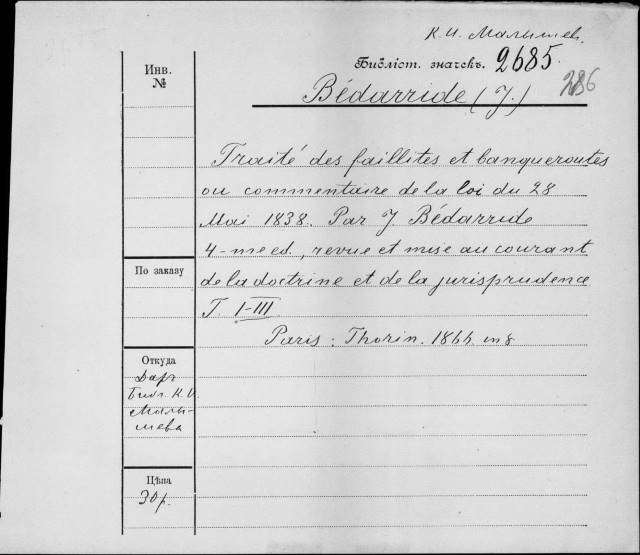 К. И. Малышев.
Библіот. значекъ. 2685.
286
Инв.
№
Bédarride (J.)
Traité des faillites et banqueroutes
ou commentaire de la loi du 28
Mai 1838. Par J. Bédarride
4-me ed., revue et mise au courant
de la doctrine et de la jurisprudence
T. I-III.
Paris: Thorin. 1844 in 8
По заказу
Откуда
Даръ
Библ. К. И.
Малы-
шева
Цѣна
30 р.